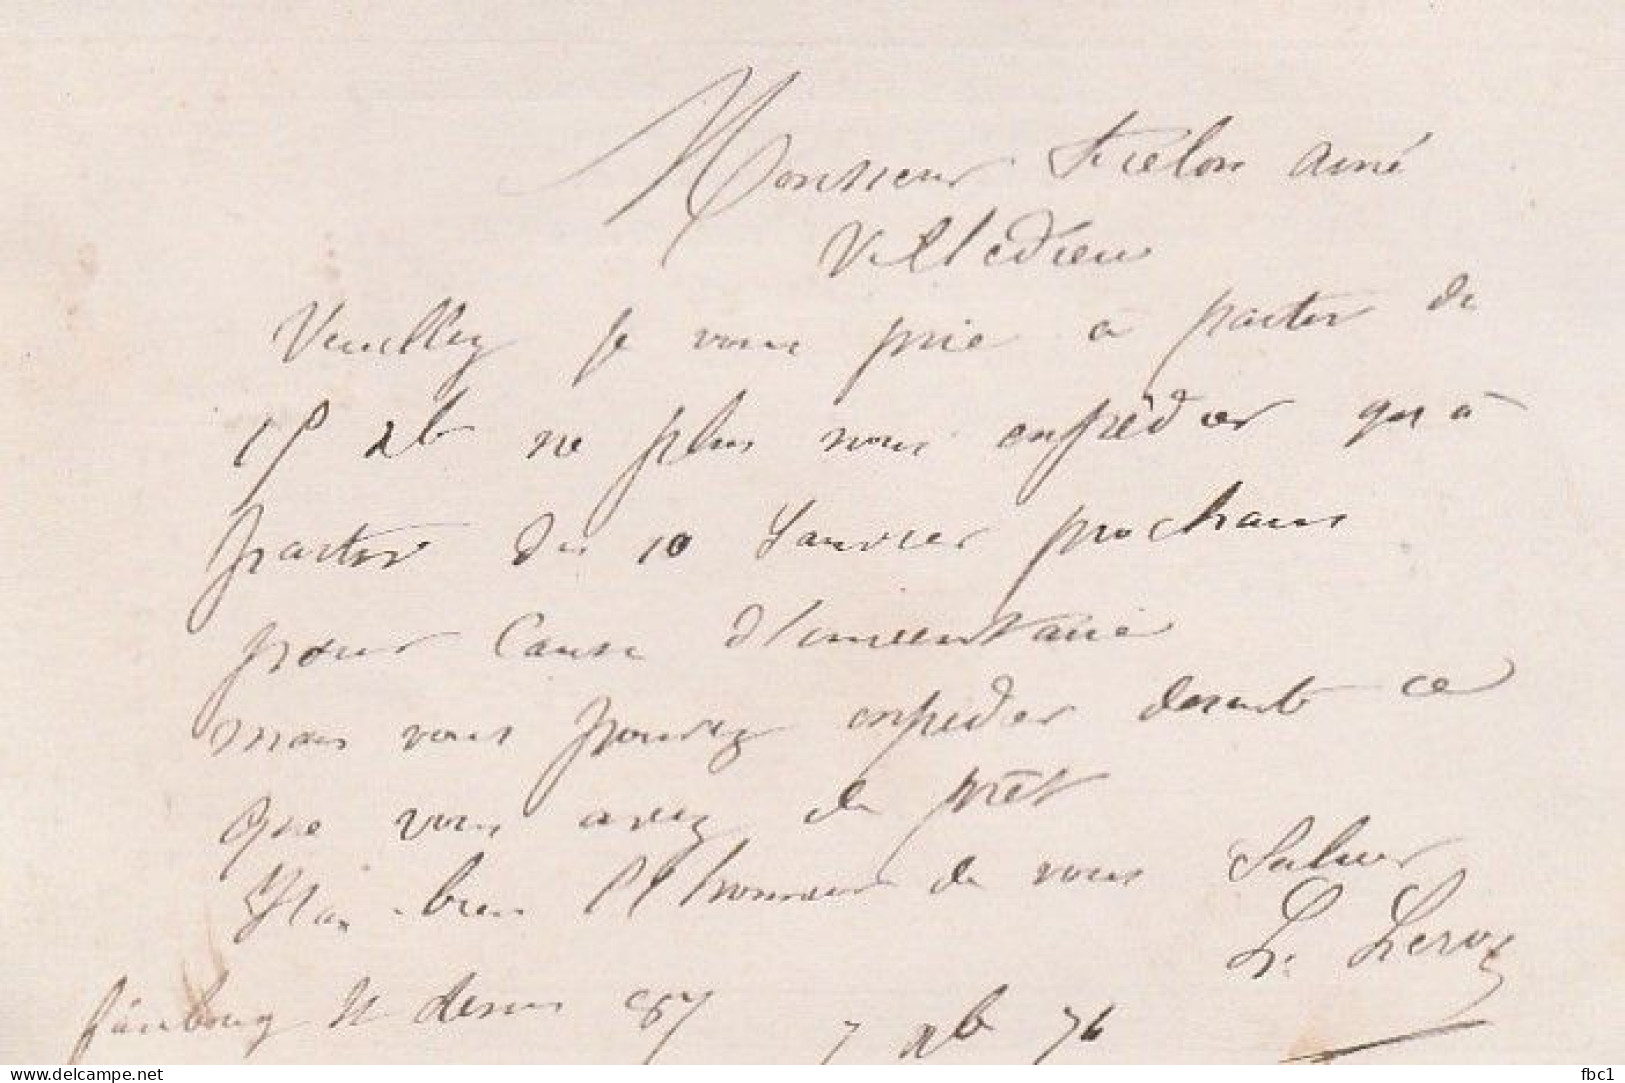 Monsieur Frelon ainé
Villedieu
Veuillez je vous prie à partir du
15 Xb ne plus nous expédier qu'à
partir du 10 Janvier prochain
pour Cause d'inventaire
mais vous pouvez expédier de suite ce
que vous avez de prêt
bien l'honneur de vous Saluer
L. Leroy
faubourg St denis 87
7 Xb 76
www.delcampe.net
fbc1